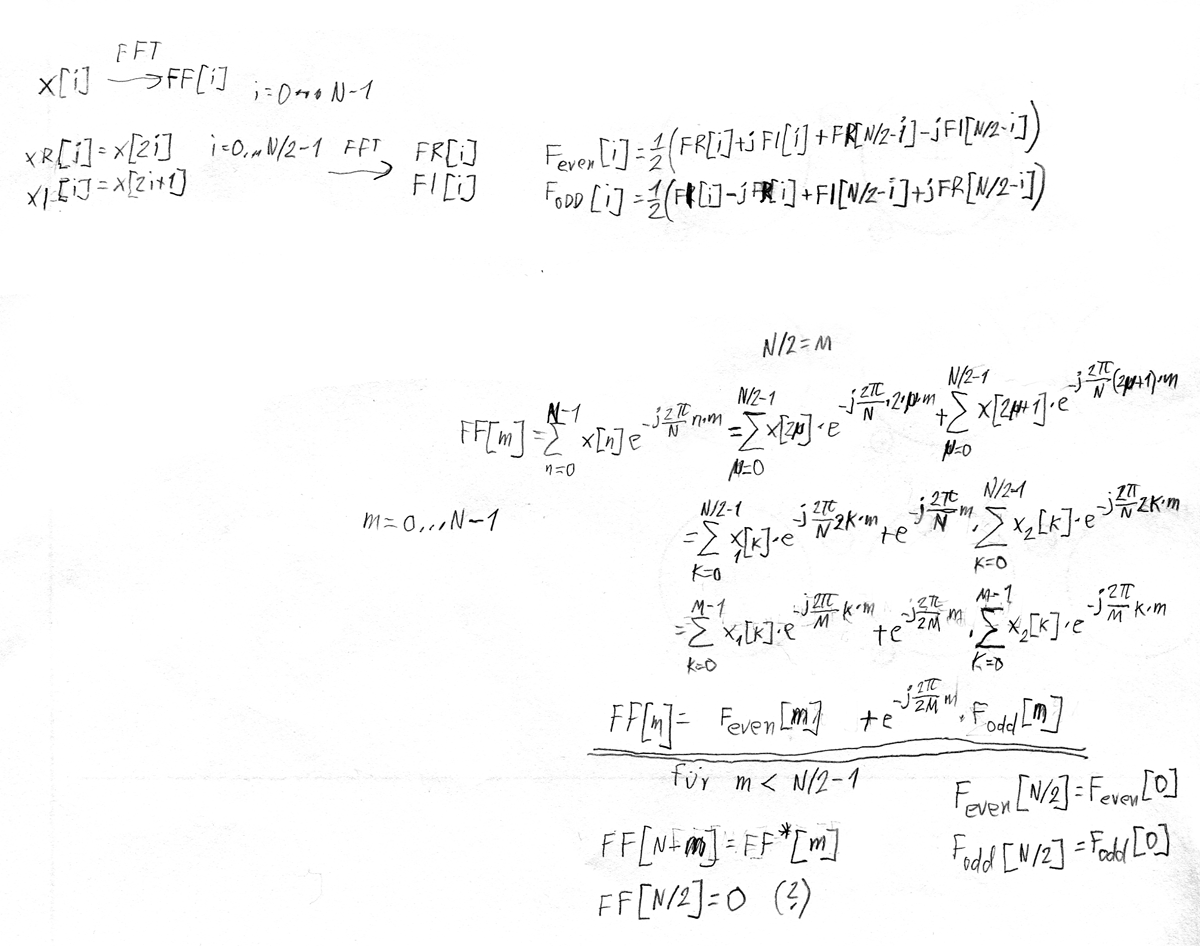 FFT
x[i] → FF[i] i=0...N-1
xR[i]=x[2i] i=0,..N/2-1 FFT → FR[i] F_even[i]=1/2(FR[i]+jFI[i]+FR[N/2-i]-jFI[N/2-i])
xI[i]=x[2i+1] FI[i] F_ODD[i]=1/2(FI[i]-jFR[i]+FI[N/2-i]+jFR[N/2-i])
N/2=M
FF[m]=∑_{n=0}^{N-1} x[n]e^{-j 2π/N n·m}=∑_{μ=0}^{N/2-1} x[2μ]·e^{-j 2π/N ·2·μ·m}+∑_{μ=0}^{N/2-1} x[2μ+1]·e^{-j 2π/N (2μ+1)·m}
m=0,..N-1 =∑_{k=0}^{N/2-1} x_1[k]·e^{-j 2π/N 2k·m}+e^{-j 2π/N m}·∑_{k=0}^{N/2-1} x_2[k]·e^{-j 2π/N 2k·m}
=∑_{k=0}^{M-1} x_1[k]·e^{-j 2π/M k·m}+e^{-j 2π/2M m}·∑_{k=0}^{M-1} x_2[k]·e^{-j 2π/M k·m}
FF[m]= F_even[m] +e^{-j 2π/2M m}·F_odd[m]
für m < N/2-1
F_even[N/2]=F_even[0]
FF[N-m]=FF*[m]
F_odd[N/2]=F_odd[0]
FF[N/2]=0 (?)